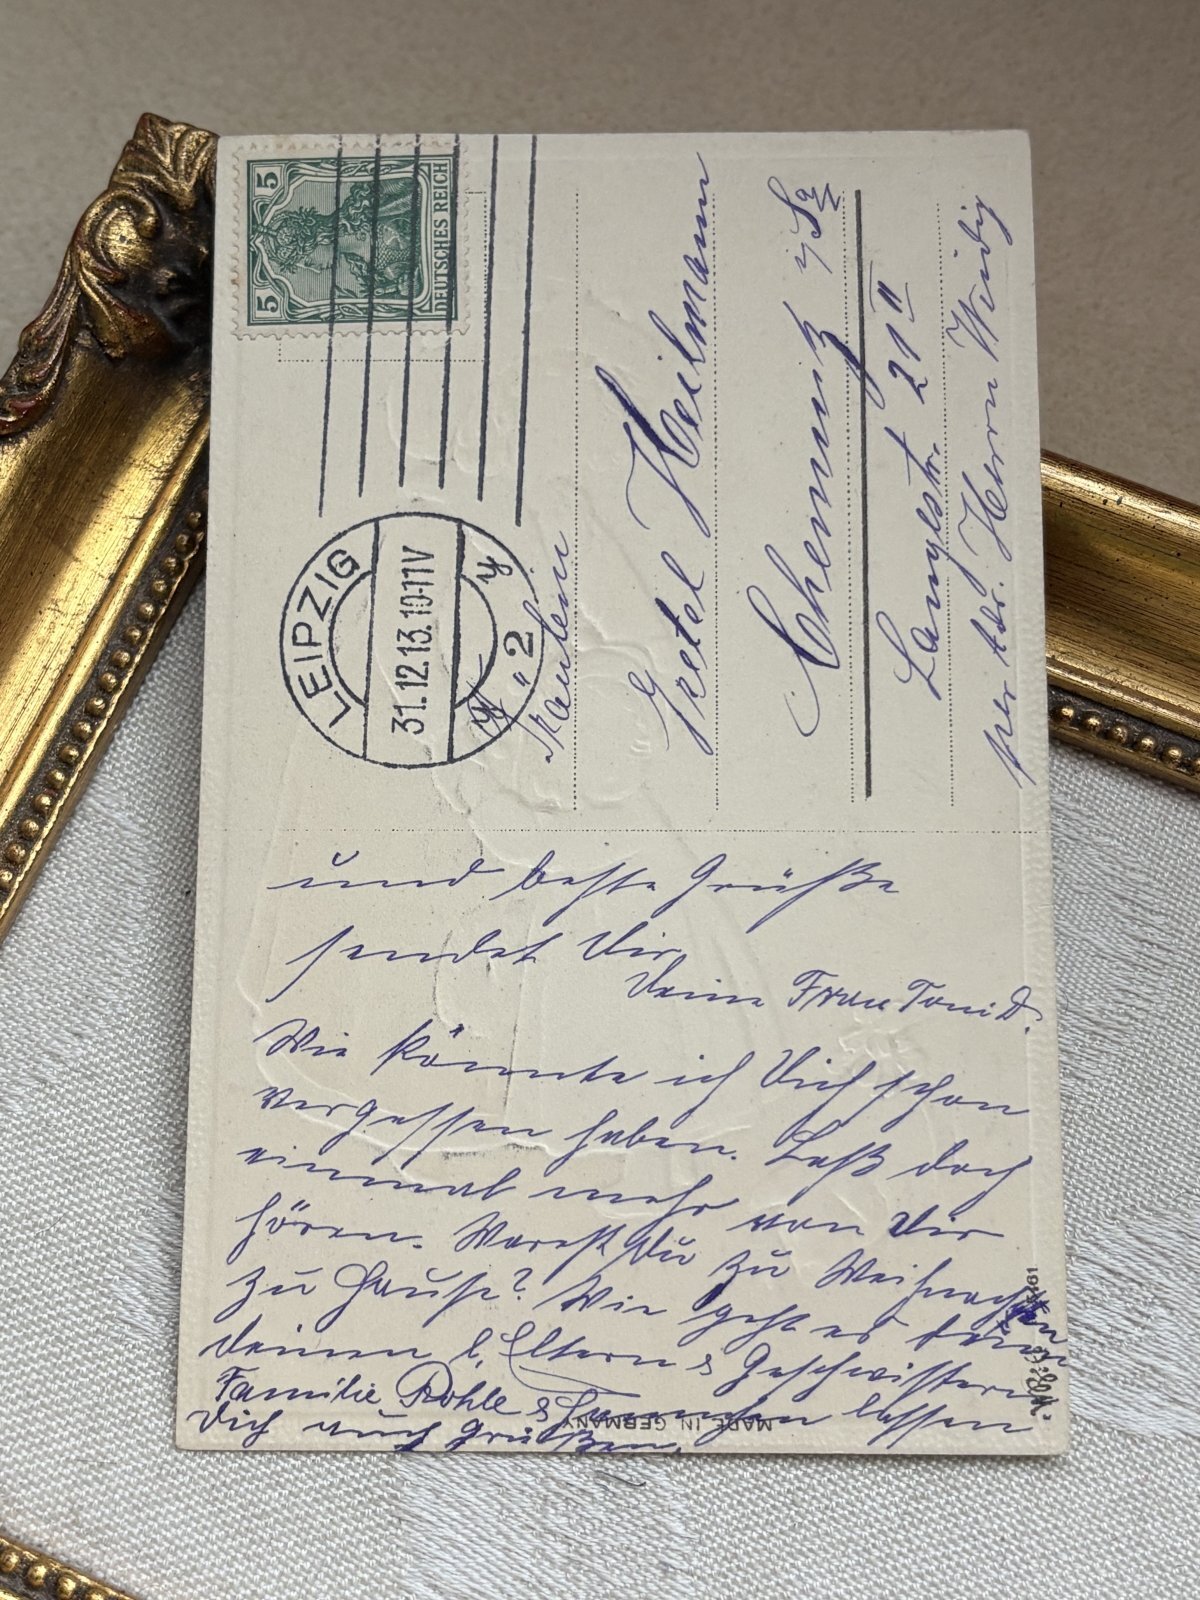 5 5
DEUTSCHES REICH
LEIPZIG
31.12.13.10-11V
2
Fräulein
Gretel Heilmann
Chemnitz i/Sa
Langstr. 21 II
per Adr. Herrn Weidig
und beste Grüße
sendet Dir
Deine Frau Toni D.
Wie könnte ich Dich schon
vergessen haben. Laß doch
einmal mehr von Dir
hören. Warest Du zu Weihnachten
zu Hause? Wie geht es
Deinen l. Eltern & Geschwistern
Familie Rohle & lassen
Dich auch grüßen.
MADE IN GERMANY